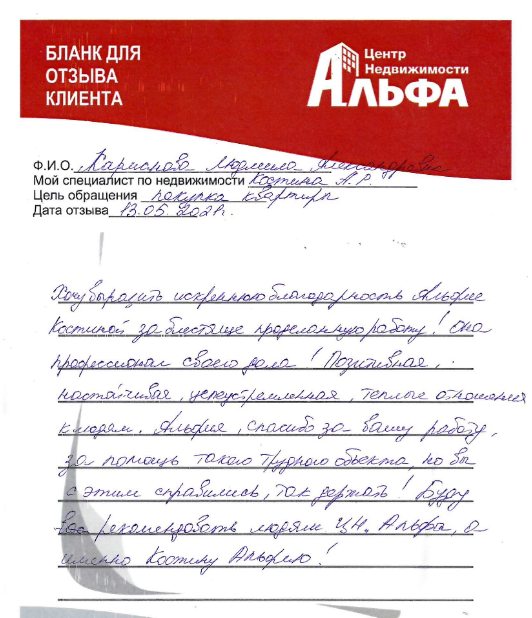 БЛАНК ДЛЯ
ОТЗЫВА
КЛИЕНТА
Центр
Недвижимости
АЛЬФА
Ф.И.О. Людмила Александровна
Мой специалист по недвижимости Костина А.Р.
Цель обращения покупка квартиры
Дата отзыва 13.05.2021г.
Хочу выразить искреннюю благодарность Альфие
Костиной за блестяще проделанную работу! Она
профессионал своего дела! Позитивная,
настойчивая, целеустремленная, теплые отношения
к людям. Альфия, спасибо за вашу работу,
за помощь такого трудного объекта, но вы
с этим справились, так держать! Буду
вас рекомендовать людям ЦН. Альфа, а
именно Костину Альфию!